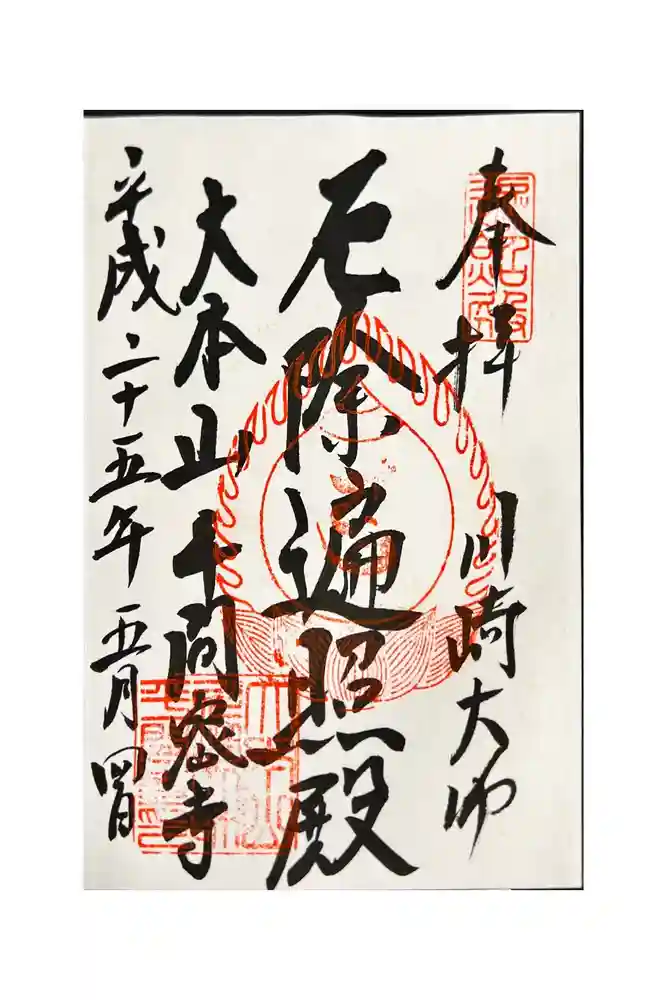 奉拝 川崎大師
厄除遍照殿
大本山平間寺
平成二十五年五月四日